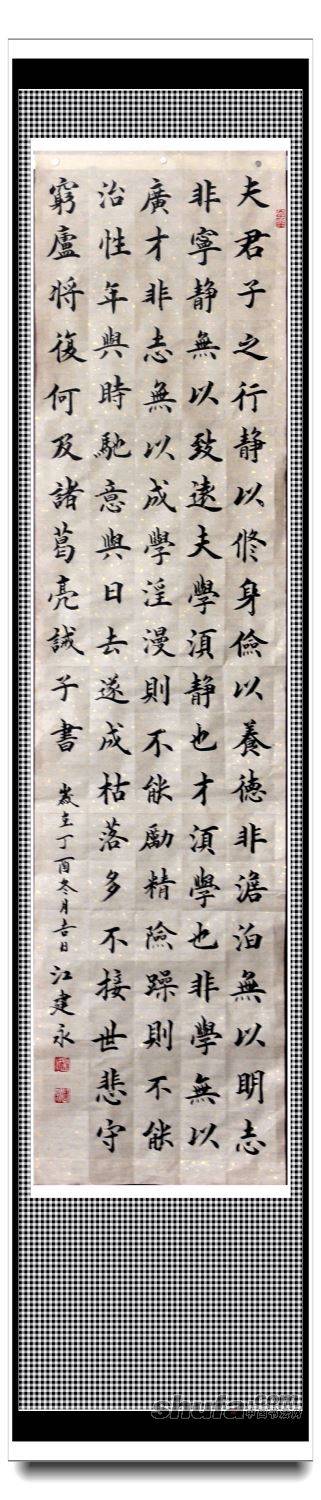 夫君子之行静以修身儉以養德非澹泊無以明志
非寧静無以致遠夫學須静也才須學也非學無以
廣才非志無以成學淫漫則不能勵精險躁則不能
治性年與時馳意與日去遂成枯落多不接世悲守
窮廬將復何及諸葛亮誡子書 歲在丁酉冬月吉日江建永
shufa.com
中国书法网